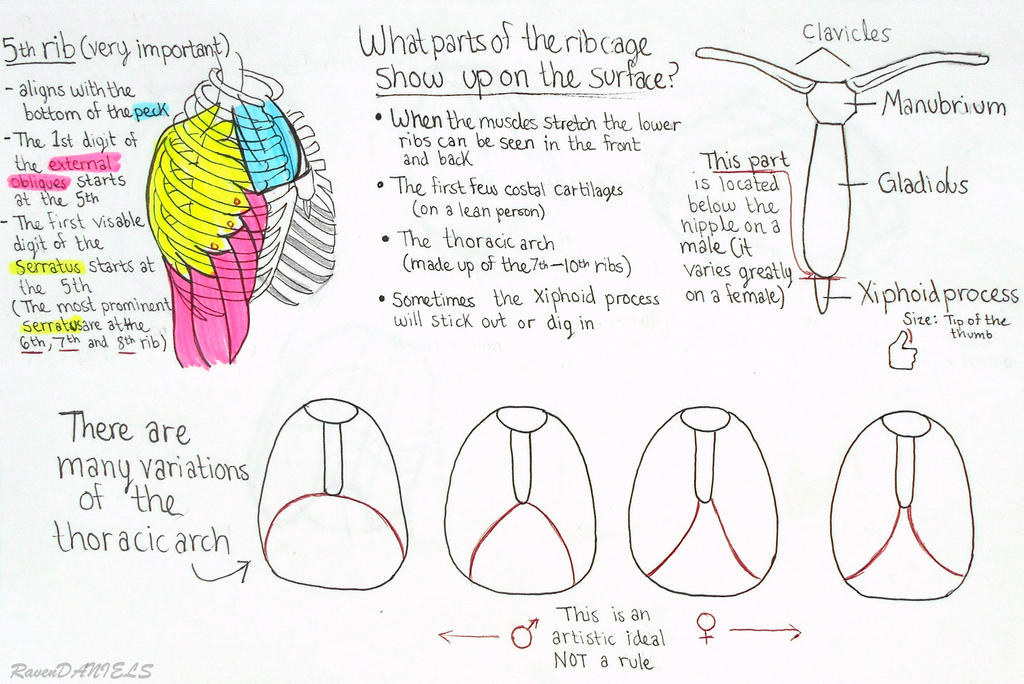 5th rib (very important)
- aligns with the
bottom of the peck
- The 1st digit of
the external
obliques starts
at the 5th
- The first visable
digit of the
Serratus starts at
the 5th
(The most prominent
Serratus are at the
6th, 7th and 8th rib)
What parts of the ribcage
show up on the surface?
• When the muscles stretch the lower
ribs can be seen in the front
and back
• The first few costal cartilages
(on a lean person)
• The thoracic arch
(made up of the 7th-10th ribs)
• Sometimes the Xiphoid process
will stick out or dig in
Clavicles
Manubrium
Gladiolus
This part
is located
below the
nipple on a
male (it
varies greatly
on a female)
Xiphoid process
Size: Tip of the
thumb
There are
many variations
of the
thoracic arch
♂ This is an ♀
artistic ideal
NOT a rule
RavenDANIELS